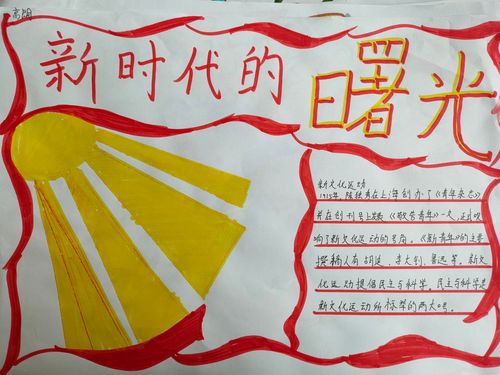 新时代的
曙光
新文化运动
1915年,陈独秀在上海创办了《青年杂志》
并在创刊号上发表《敬告青年》一文,正式吹
响了新文化运动的号角。《新青年》的主要
撰稿人有胡适、李大钊、鲁迅等。新文
化运动提倡民主与科学,民主与科学是
新文化运动所标举的两大口号。